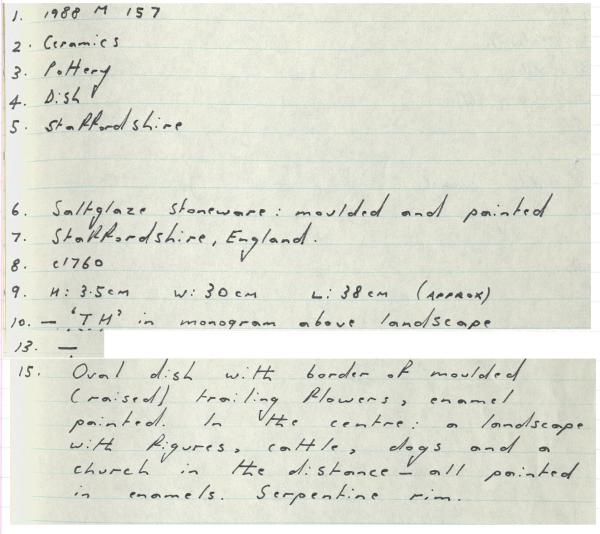 1. 1988 M 157
2. Ceramics
3. Pottery
4. Dish
5. Staffordshire
6. Saltglaze stoneware: moulded and painted
7. Staffordshire, England.
8. c1760
9. H: 3.5cm W: 30cm L: 38cm (APPROX)
10. — 'TH' in monogram above landscape
13. —
15. Oval dish with border of moulded
(raised) trailing flowers, enamel
painted. In the centre: a landscape
with figures, cattle, dogs and a
church in the distance — all painted
in enamels. Serpentine rim.